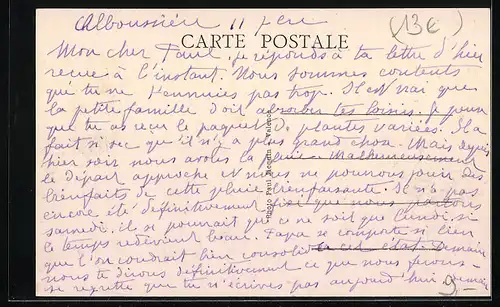 Alboussière 11
(13€)
CARTE POSTALE
Mon cher Paul, je réponds à ta lettre d'hier
reçue à l'instant. Nous sommes contents
que tu ne t'ennuies pas trop. Il est vrai que
la petite famille doit absorber tes loisirs. Je pense
que tu as reçu le paquet de plantes variées. Il a
fait si sec que il n'y a plus grand chose. Mais depuis
hier soir nous avons la pluie. Malheureusement
le départ approche et nous ne pourrons jouir des
bienfaits de cette pluie bienfaisante. Il n'a pas
encore été définitivement fixé que nous partons
samedi, il se pourrait que ce ne soit que lundi, si
le temps redevient beau. Papa se comporte si bien
que l'on voudrait bien consolider cet état. Demain
nous te dirons définitivement ce que nous ferons.
Je regrette que tu n'écrives pas aujourd'hui
9-
Photo Paul Valence